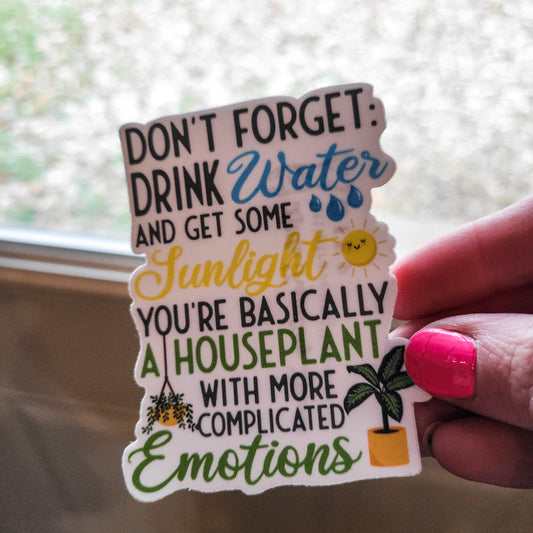 DON'T FORGET:
DRINK Water
AND GET SOME
Sunlight
YOU'RE BASICALLY
A HOUSEPLANT
WITH MORE
COMPLICATED
Emotions